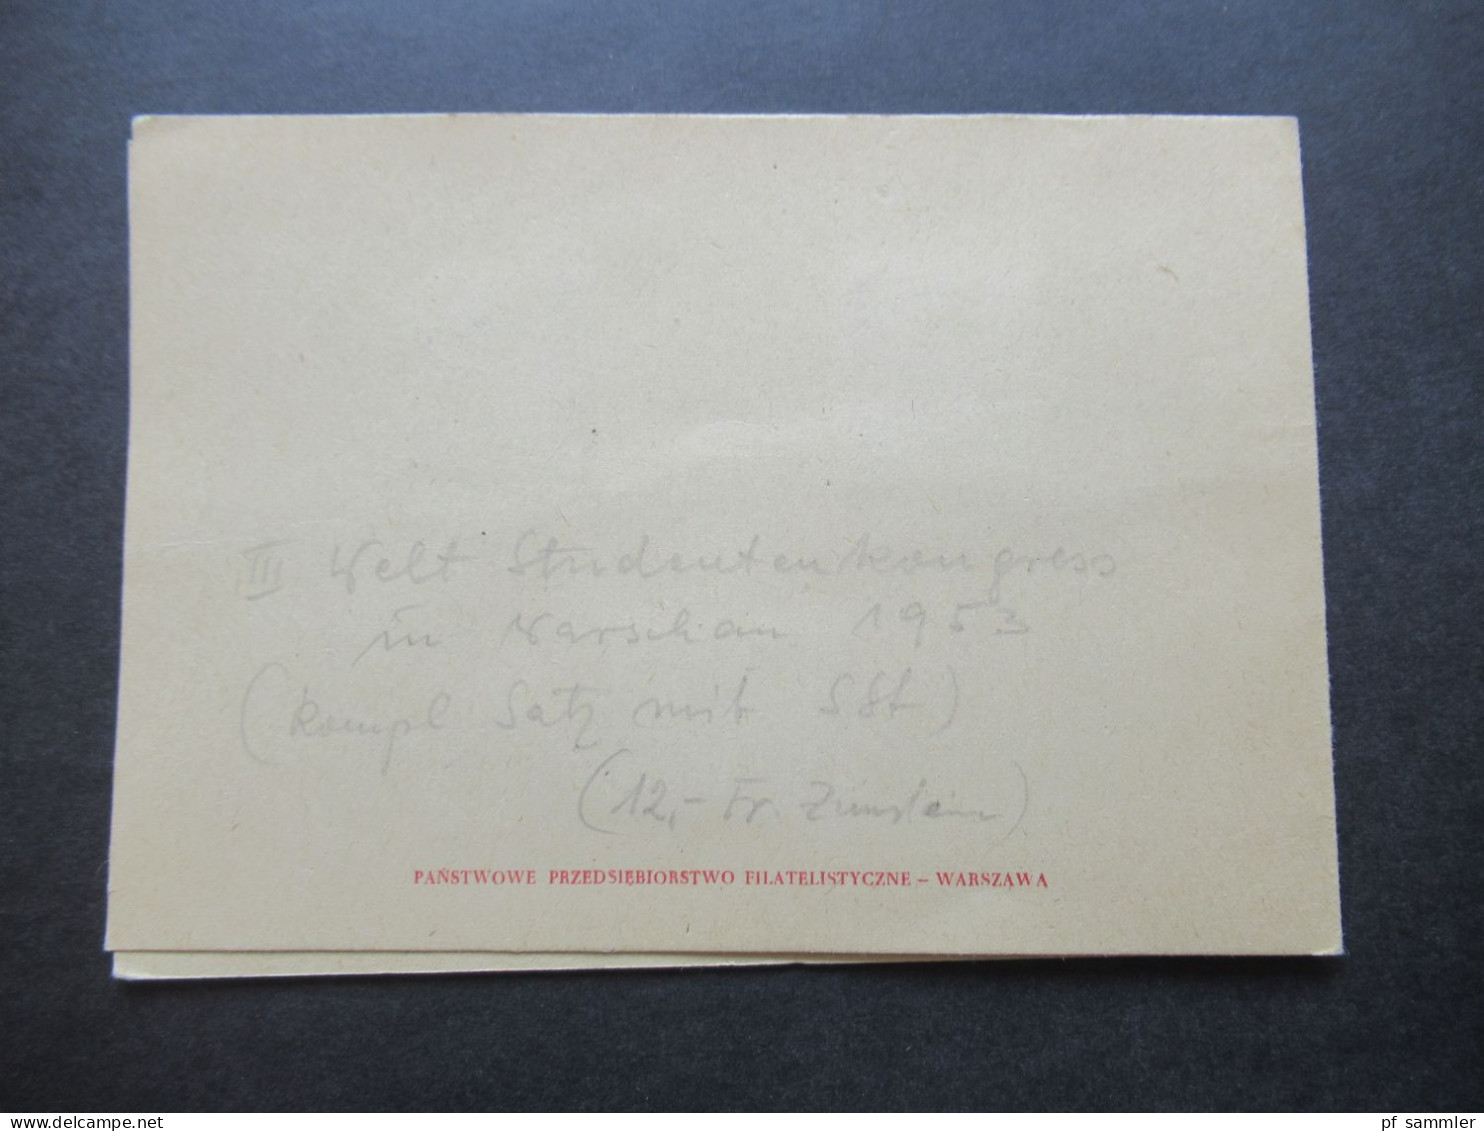 III Welt Studentenkongress
in Warschau 1953
(kompl Satz mit SSt)
(12,- Fr. Zumstein)
PAŃSTWOWE PRZEDSIĘBIORSTWO FILATELISTYCZNE – WARSZAWA
delcampe.net
pf_sammler